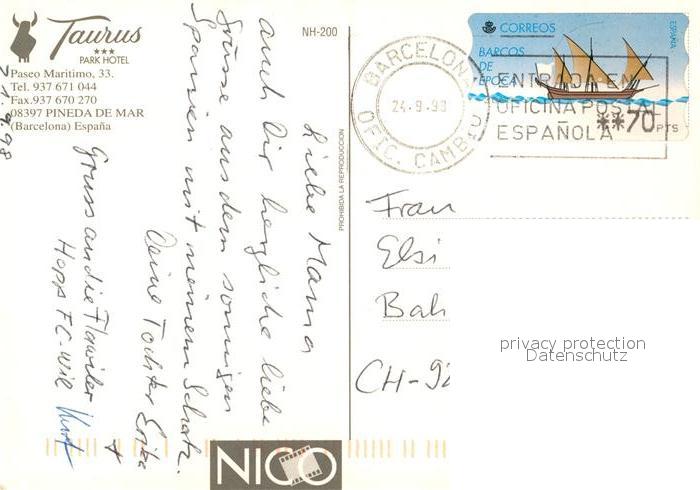 Taurus
★★★
PARK HOTEL
Paseo Maritimo, 33.
Tel. 937 671 044
Fax.937 670 270
08397 PINEDA DE MAR
(Barcelona) España
NH-200
PROHIBIDA LA REPRODUCCION
Liebe Mama
auch Dir herzliche liebe
Grüsse aus dem sonnigen
Spanien mit meinem Schatz.
Deine Tochter Erika
+
Kurt
Gruss an die Flawiler
Hopp FC-Wil
BARCELONA
24.-9.-98
OFIC. CAMBIO
CORREOS
ESPAÑA
BARCOS
DE
EPOCA
ENTRADA EN
OFICINA POSTAL
ESPAÑOLA
**70 PTS
Frau
Elsi
Bah
CH-92
privacy protection
Datenschutz
NICO